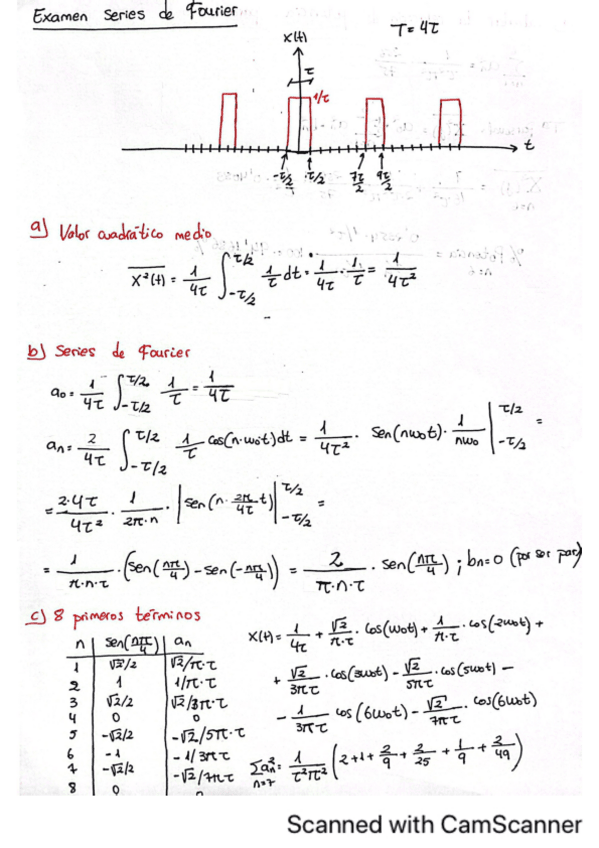 Examen Series de Fourier
T = 4τ
x(t)
τ
1/τ
t
-τ/2 τ/2 7τ/2 9τ/2
a) Valor cuadrático medio
X²(t) = 1/4τ ∫_{-τ/2}^{τ/2} 1/τ dt = 1/4τ · 1/τ = 1/4τ²
b) Series de Fourier
a₀ = 1/4τ ∫_{-τ/2}^{τ/2} 1/τ = 1/4τ
aₙ = 2/4τ ∫_{-τ/2}^{τ/2} 1/τ cos(n·ω₀t)dt = 1/4τ² · sen(nω₀t) · 1/nω₀ |_{-τ/2}^{τ/2} =
= 2·4τ/4τ² · 1/2π·n · |sen(n · 2π/4τ t)|_{-τ/2}^{τ/2} =
= 1/π·n·τ · (sen(nπ/4) - sen(-nπ/4)) = 2/π·n·τ · sen(nπ/4) ; bn=0 (por ser par)
c) 8 primeros términos
n | sen(nπ/4) | an
1 | √2/2 | √2/π·τ
2 | 1 | 1/π·τ
3 | √2/2 | √2/3π·τ
4 | 0 | 0
5 | -√2/2 | -√2/5π·τ
6 | -1 | -1/3πτ
7 | -√2/2 | -√2/7πτ
8 | 0
x(t) = 1/4τ + √2/π·τ · cos(ω₀t) + 1/π·τ · cos(2ω₀t) +
+ √2/3πτ · cos(3ω₀t) - √2/5πτ · cos(5ω₀t) -
- 1/3πτ cos(6ω₀t) - √2/7πτ · cos(6ω₀t)
∑aₙ² n=7 = 1/τ²π² (2+1+ 2/9 + 2/25 + 1/9 + 2/49)
Scanned with CamScanner